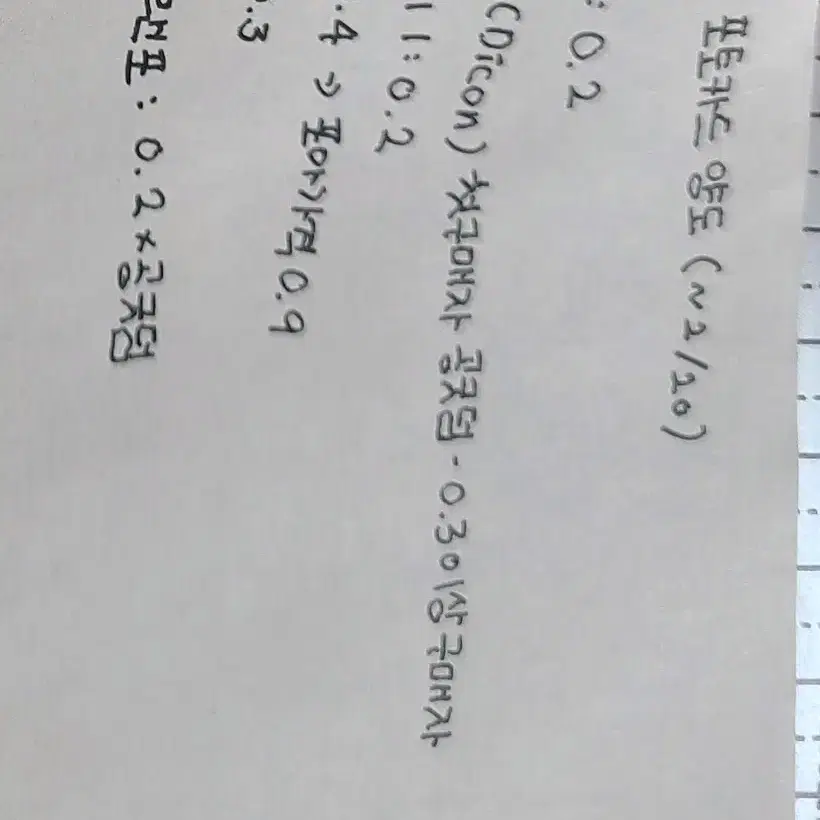 포토카드 양도 (~2/20)
: 0.2
(Dicon) 첫구매자 공굿덤 - 0.3이상구매자
11: 0.2
.4 → 포아가격 0.9
.3
포: 0.2 × 공굿덤